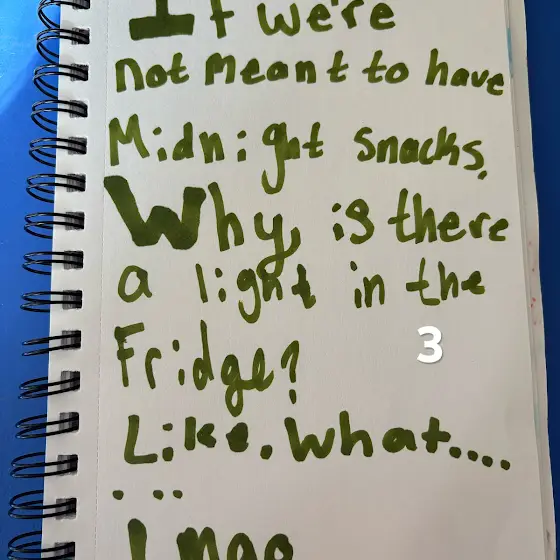 If we're
not meant to have
Midnight snacks,
Why, is there
a light in the
Fridge?
3
Like. What....
...
Lmao